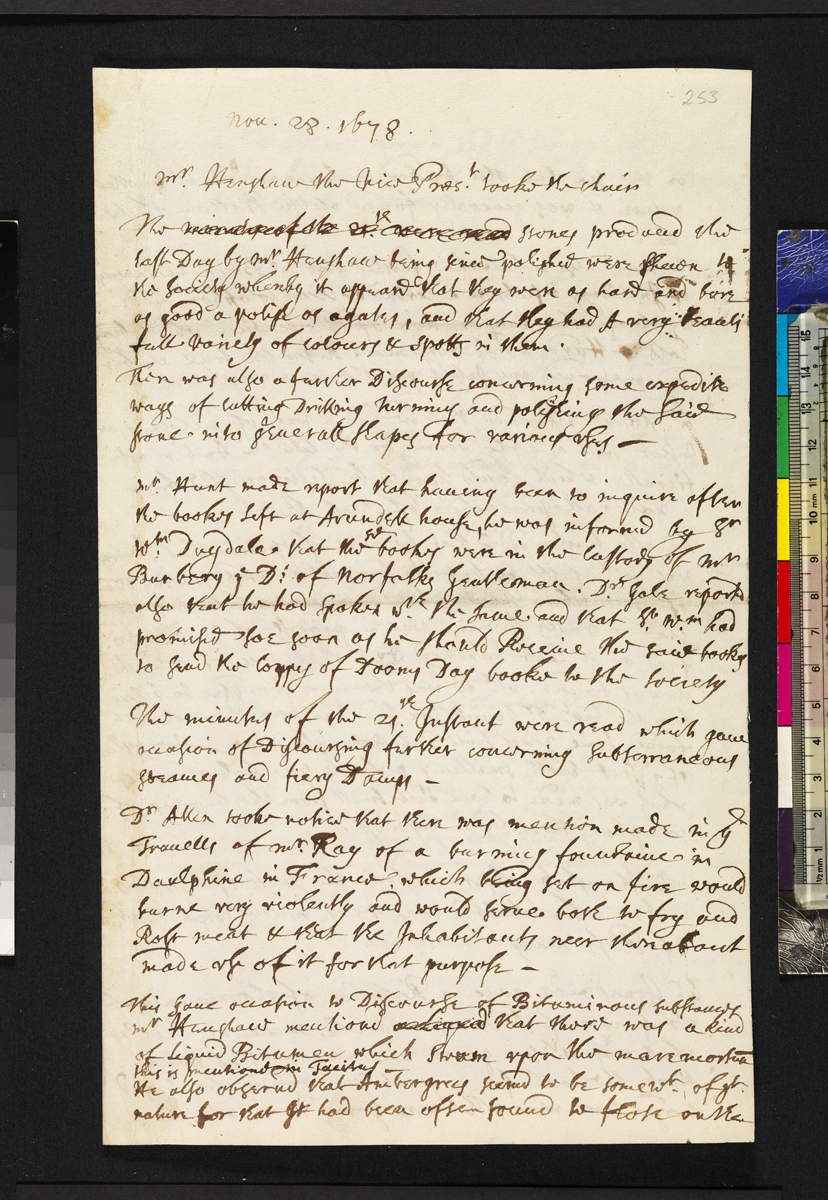 253
Nov. 28. 1678.
Mr. Henshaw the Vice Prest. tooke the chair
The minutes of the 21th were read stones produced the
last Day by mr Henshaw being since polished were shewn to
the Society whereby it appeard that they were as hard and bore
as good a polish as agates, and that they had A very beauti
full variety of colours & spotts in them.
There was also a further Discourse concerning some expedite
ways of Cutting Drilling turning and polishing the said
stone into severall shapes for various uses —
mr. Hunt made report that having been to inquire after
the bookes left at Arundell house, he was informed by Sr
Wm Dugdale that the sd bookes were in the custody of mr
Burbery ye D: of Norfolks Gentleman. Dr. Gale reported
also that he had spoken wth the same and that Sr. Wm. had
promised soe soon as he should Receive the said bookes
to send the coppy of Dooms Day booke to the Society
The minutes of the 21th. Instant were read which gave
occasion of Discoursing further concerning subterraneous
steames and fiery Damps —
Dr. Allen tooke notice that there was mention made in ye
Travells of mr. Ray of a burning fountaine in
Daulphine in France, which being set on fire would
burne very violently and would serve both to fry and
Rost meat & that the Inhabitants neer thereabout
made use of it for that purpose —
This gave occasion to Discourse of Bituminous substances
mr Henshaw mentiond a liquid that there was a kind
of liquid Bitumen which swam upon the mare mortuum
this is mentiond in Tacitus —
He also observd that Ambergrees seemd to be somewt. of yt.
nature for that It had been often found to flote on the